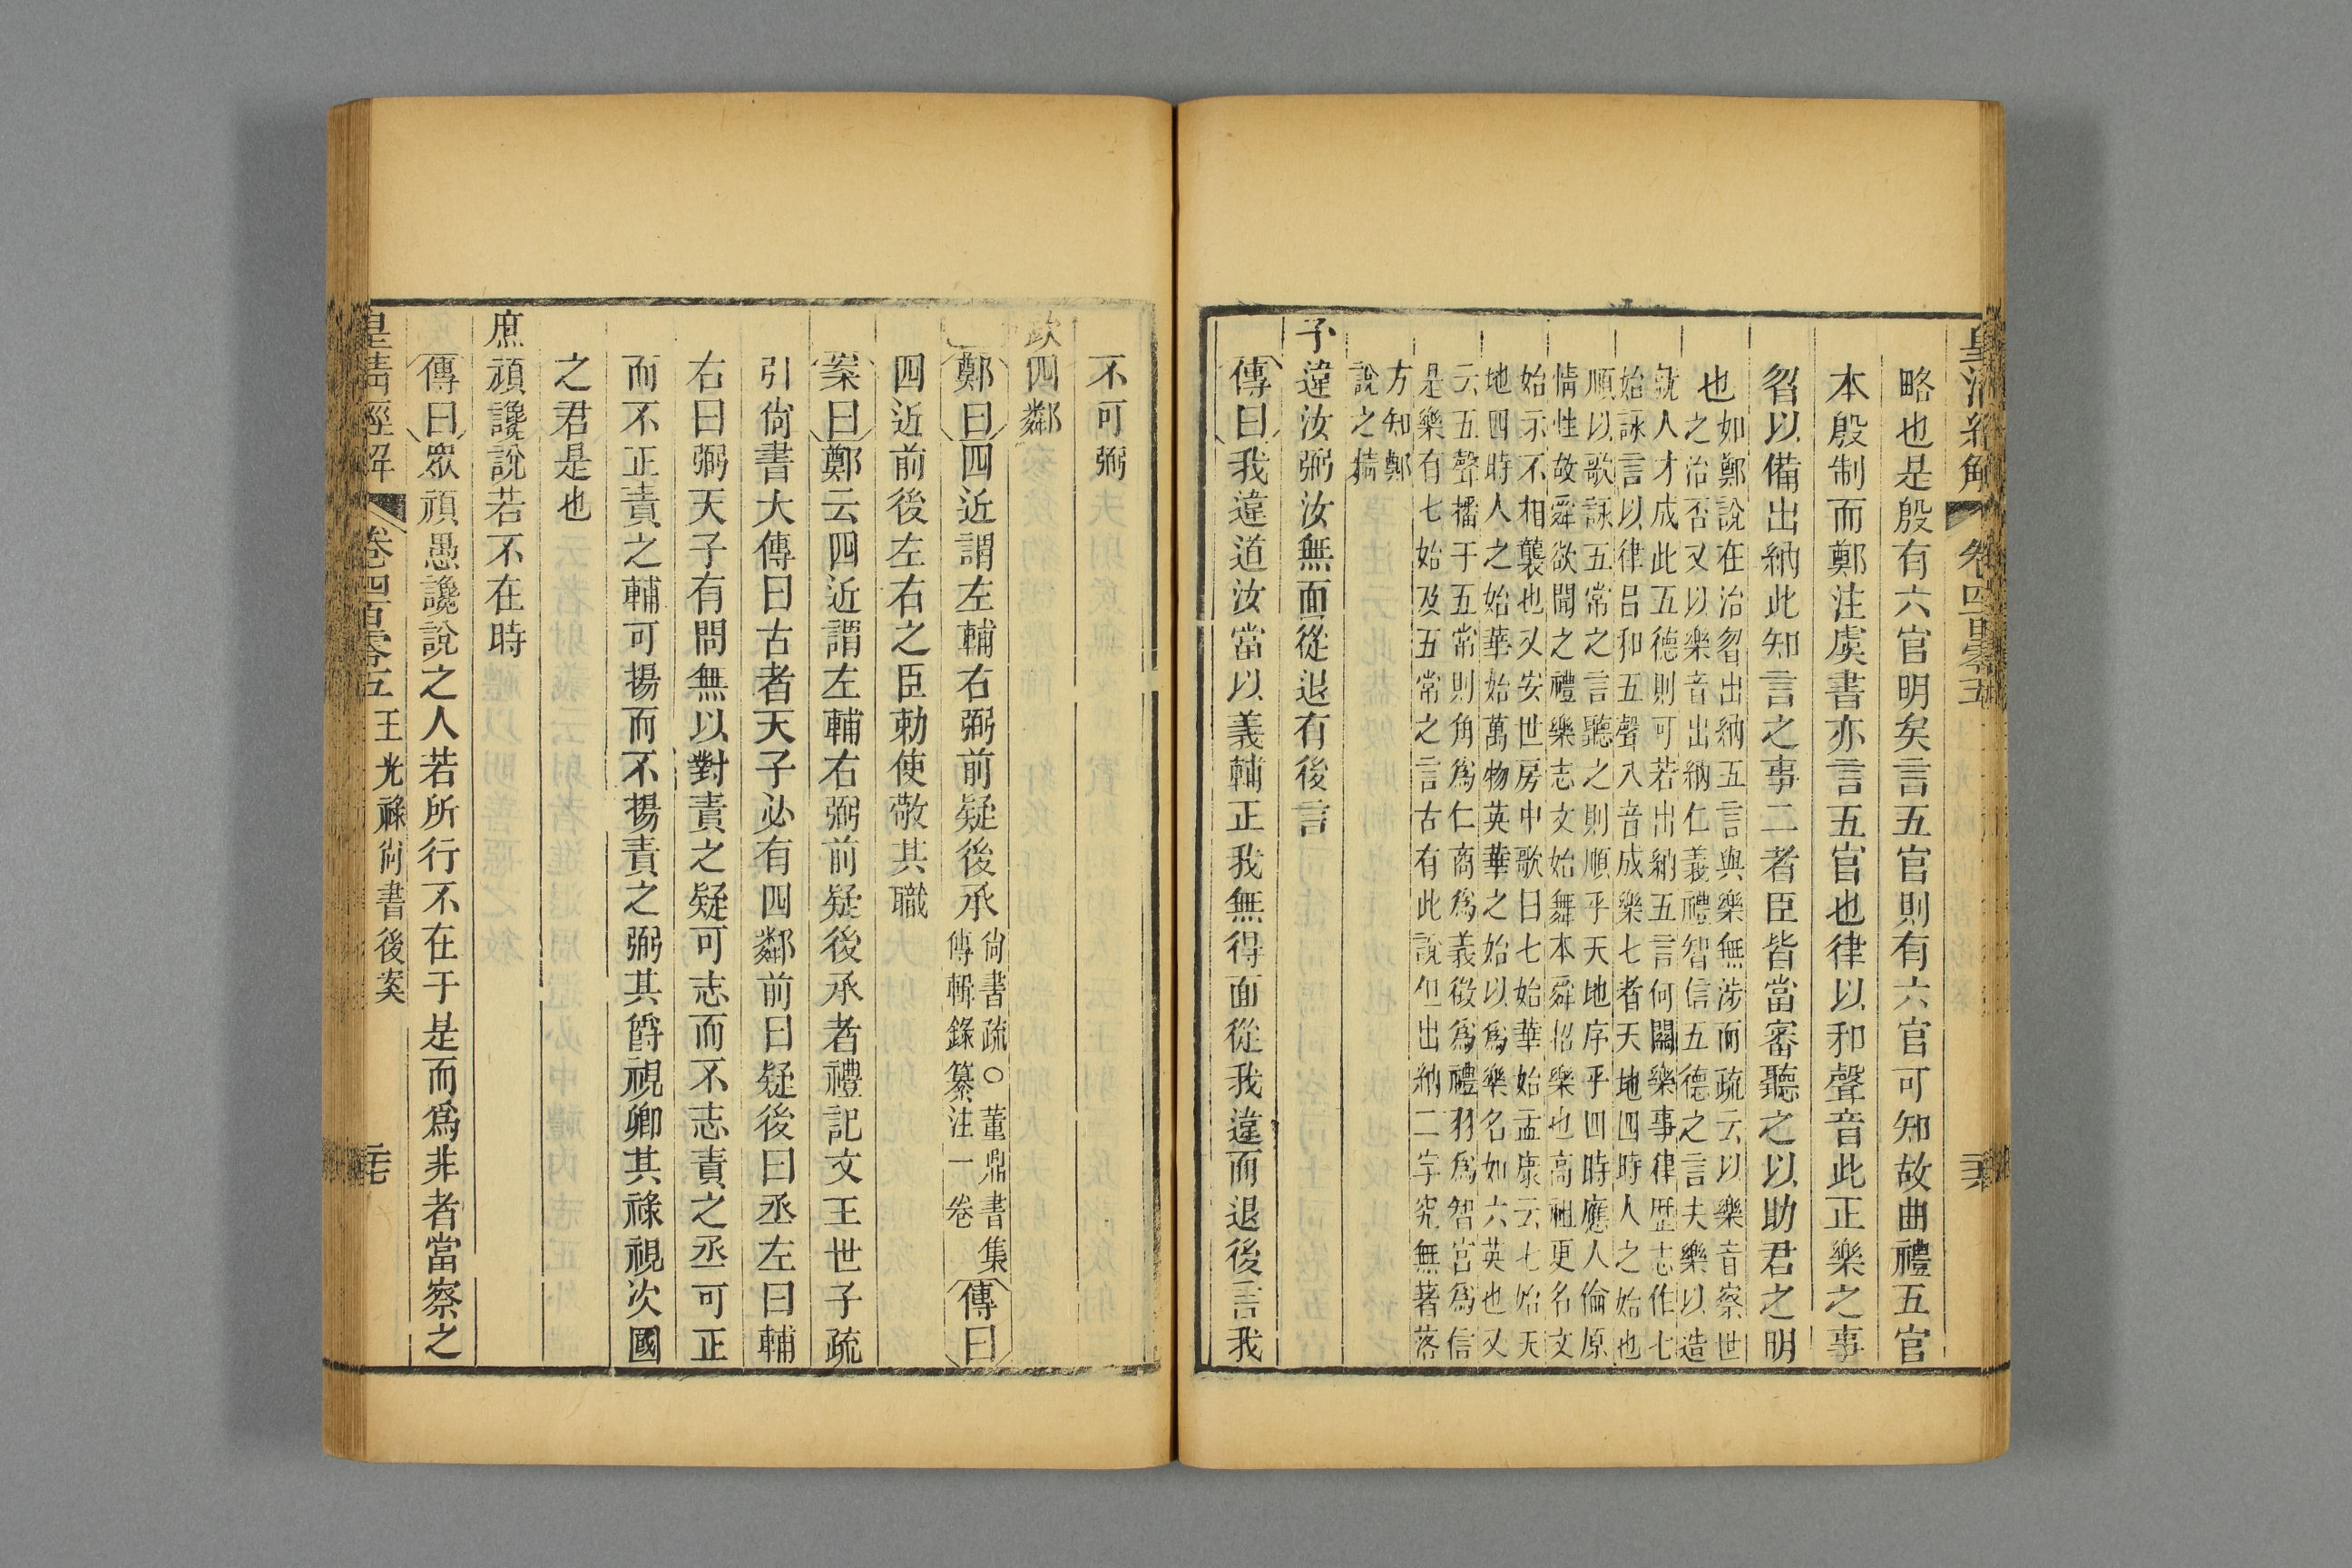 皇清經解 卷四百零五 
略也是殷有六官明矣言五官則有六官可知故曲禮五官
本殷制而鄭注虞書亦言五官也律以和聲音此正樂之事
智以備出納此知言之事二者臣皆當審聽之以助君之明
也如鄭說在治智出納五言與樂無涉而疏云以樂音察世
之治否又以樂音出納仁義禮智信五德之言夫樂以造
就人才成此五德則可若出納五言何關樂事律歷志作七
始詠言以律呂和五聲八音成樂七者天地四時人之始也
順以歌詠五常之言聽之則順乎天地序乎四時應人倫原
情性故舜欲聞之禮樂志文始舞本舜招樂也高祖更名文
始示不相襲也又安世房中歌曰七始華始孟康云七始天
地四時人之始華始萬物英華之始以為樂名如六英也又
云五聲播于五常則角為仁商為義徵為禮羽為智宮為信
是樂有七始及五常之言古有此說但出納二字究無著落
方知鄭
說之精
予違汝弼汝無面從退有後言
傳曰我違道汝當以義輔正我無得面從我違而退後言我
不可弼
欽四鄰
鄭曰四近謂左輔右弼前疑後承尚書疏○董鼎書集
傳輯錄纂注一卷傳曰
四近前後左右之臣勅使敬其職
案曰鄭云四近謂左輔右弼前疑後承者禮記文王世子疏
引尚書大傳曰古者天子必有四鄰前曰疑後曰丞左曰輔
右曰弼天子有問無以對責之疑可志而不志責之丞可正
而不正責之輔可揚而不揚責之弼其爵視卿其祿視次國
之君是也
庶頑讒說若不在時
傳曰眾頑愚讒說之人若所行不在于是而為非者當察之
皇清經解 卷四百零五 王光祿尚書後案 三七